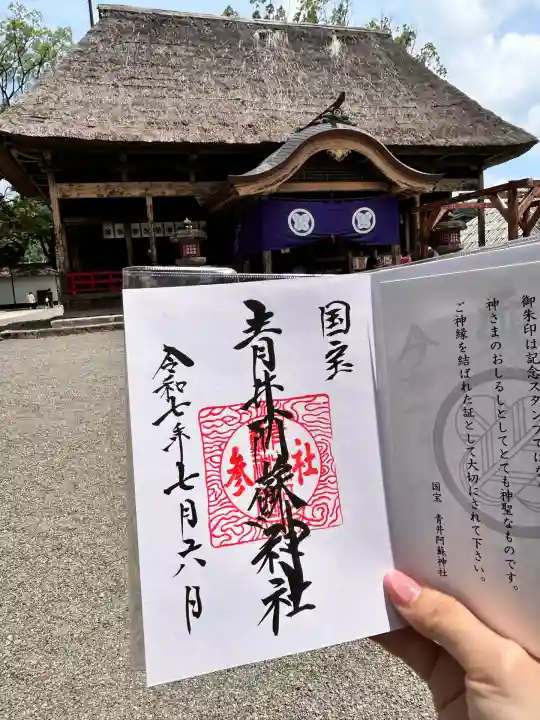 御朱印は記念スタンプではなく
神さまのおしるしとしてとても神聖なものです。
ご神縁を結ばれた証として大切にされて下さい。
国宝 青井阿蘇神社
国宝
青井阿蘇神社
参社
令和七年七月六日